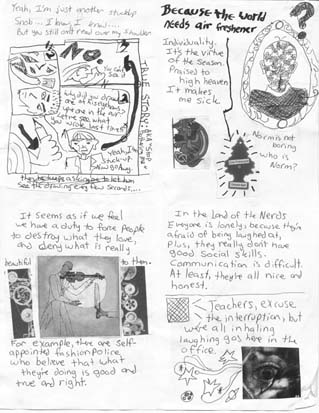 Yeah, I'm just another stuckup
Snob... I know, I know....
But you still can't read over my shoulder
NO
TRUE STORY
Why did you draw
Yeah, I'm
stuck-up
Now go away
then he keeps asking me to let him
see the drawing every few seconds....
Because the World
needs air freshener
?
Individuality.
It's the virtue
of the Season.
Praised to
high heaven
It makes
me sick.
Norm is not
boring
who is
Norm?
It seems as if we feel
we have a duty to force people
to destroy what they love,
and deny what is really
beautiful to them.
For example, there are self-
appointed fashion police,
who believe that what
they're doing is good and
true and right.
In the land of the Nerds
Everyone is lonely, because they're
afraid of being laughed at,
Plus, they really don't have
good Social skills.
Communication is difficult.
At least, they're all nice and
honest.
Teachers, excuse
the interruption, but
we're all inhaling
laughing gas here in the
office.